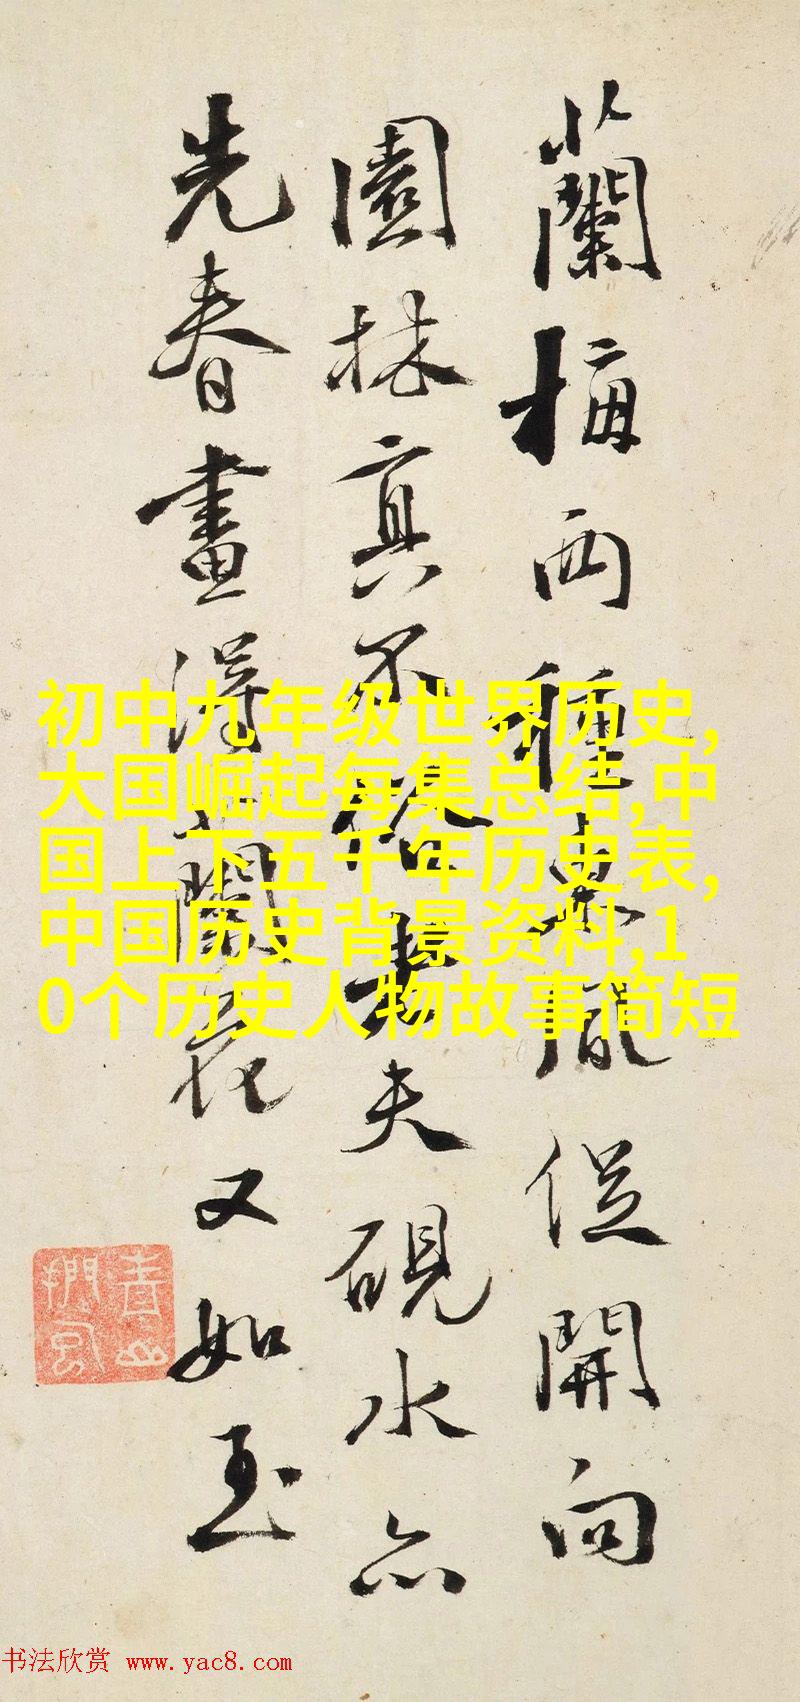 蘭梅兩種東風促開向
園林真不俗老夫硯水亦
先春畫得蘭花又如玉
初中九年级世界历史,
大国崛起每集总结,中
国上下五千年历史表,
中国历史背景资料,1
0个历史人物故事简短
书法欣赏 www.yac8.com